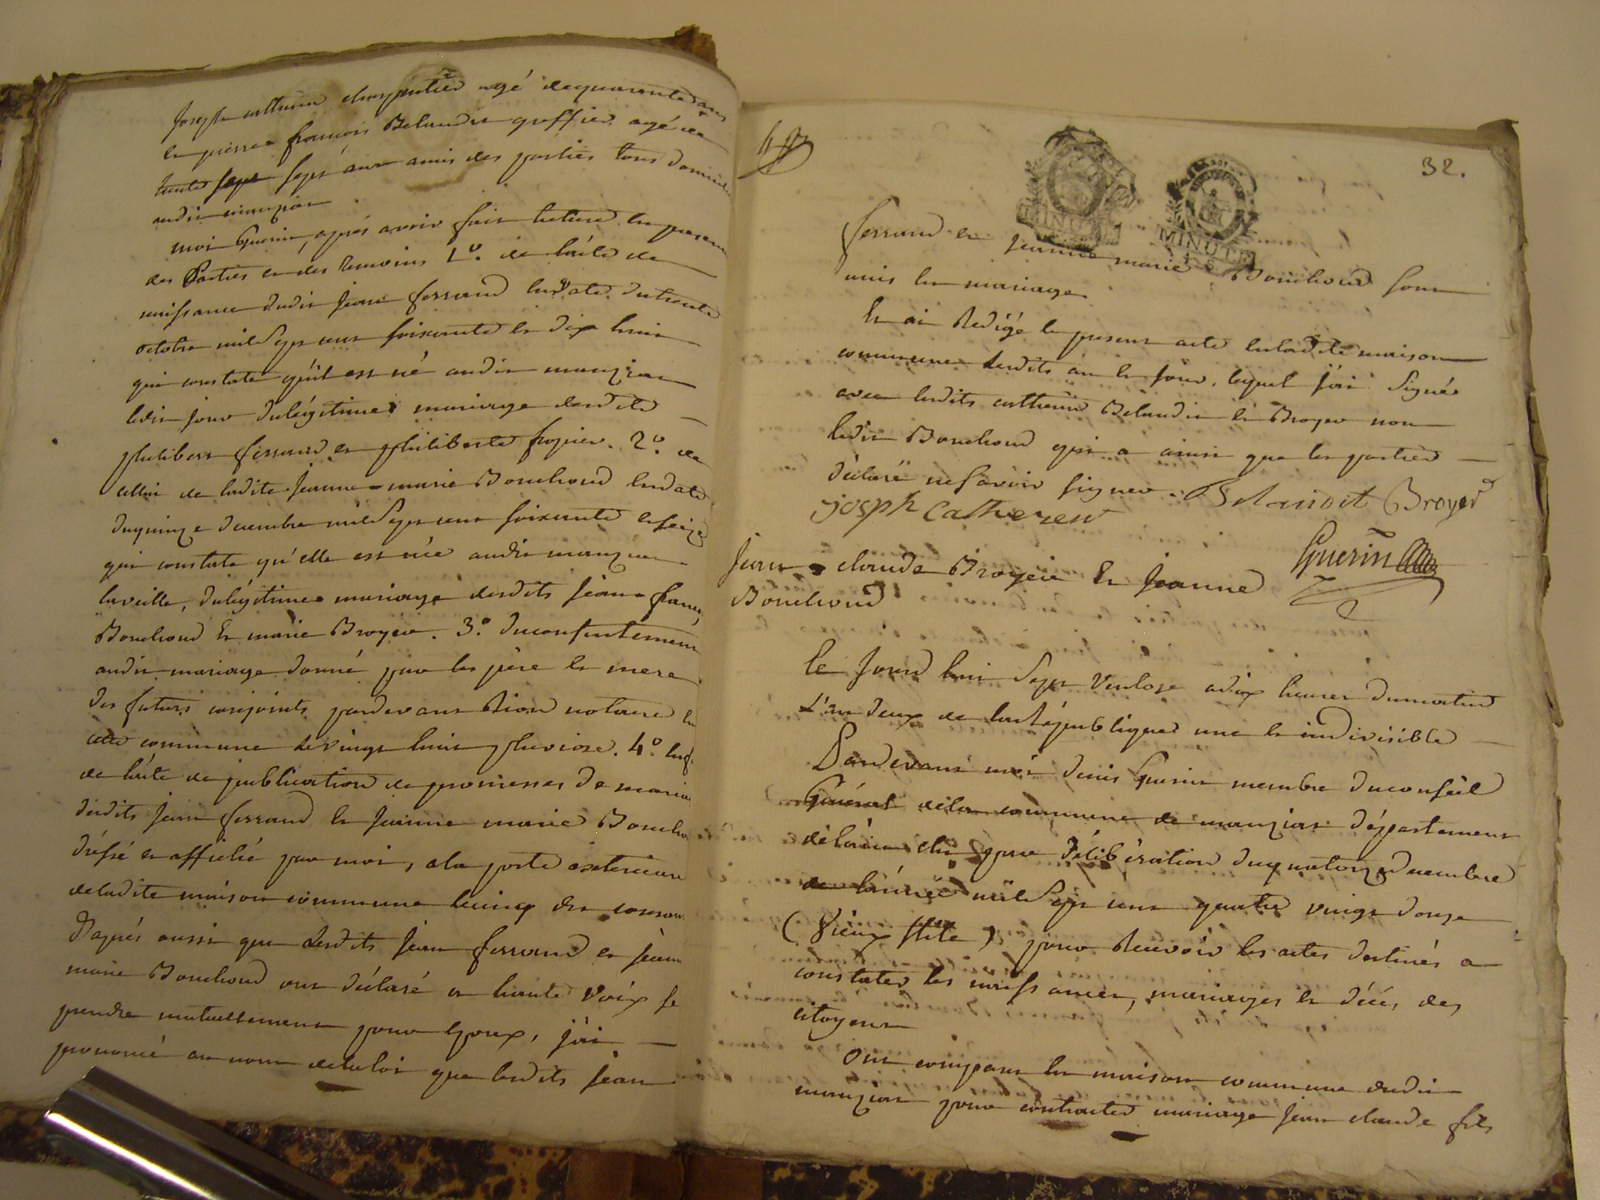 Joseph catherin charpentier agé de quarante ans
et pierre françois Belandit greffier agé de
trente sept sept ans amis des parties tous domiciliés
audit manziat
moi Guerin, après avoir fait lecture en presence
des Parties et des temoins 1°. de l'acte de
naissance dudit Jean ferrand en date du trente
octobre mil Sept cent soixante et dix huit
qui constate qu'il est né audit manziat
ledit jour du légitime mariage desdits
philibert ferrand et philiberte frozier. 2°. de
celui de ladite Jeanne-marie Bouchoud en date
du quinze decembre mil Sept cent soixante et seize
qui constate qu'elle est née audit manziat
la veille, du légitime mariage desdits Jean françois
Bouchoud et marie Broyer. 3°. du consentement
audit mariage donné par les père et mere
des futurs conjoints pardevant notaire en
cette commune le vingt huit pluviose. 4°. enfin
de l'acte de publication de promesses de mariage
desdits Jean ferrand et Jeanne marie Bouchoud
dressé et affiché par moi, a la porte exterieure
de ladite maison commune le cinq du courant
D'après aussi que lesdits Jean ferrand et Jeanne
marie Bouchoud ont déclaré a haute voix se
prendre mutuellement pour Epoux, j'ai
prononcé au nom de la loi que lesdits Jean
32.
MINUTE
MINUTE
ferrand et Jeanne marie Bouchoud sont
unis en mariage
Et ai Redigé le present acte en ladite maison
commune lesdits an et jour, lequel j'ai Signé
avec lesdits catherin Belandit et Broyer non
ledit Bouchoud qui a ainsi que les parties
déclaré ne savoir signer. Belandit Broyer
joseph Catherein
Guerin
Jean-claude Broyer Et Jeanne
Bouchoud
Ce Jourd'hui Sept Ventose a dix heures du matin
L'an deux de la République une et indivisible
Pardevant moi denis Guerin membre du conseil
Général de la commune de manziat département
de l'ain elu par délibération du quatorze decembre
de l'année mil Sept cent quatre vingt douze
(Vieux Stile) pour Recevoir les actes destinés a
constater les naissances, mariages et décés des
citoyens
Ont comparu en maison commune dudit
manziat pour contracter mariage Jean claude fils